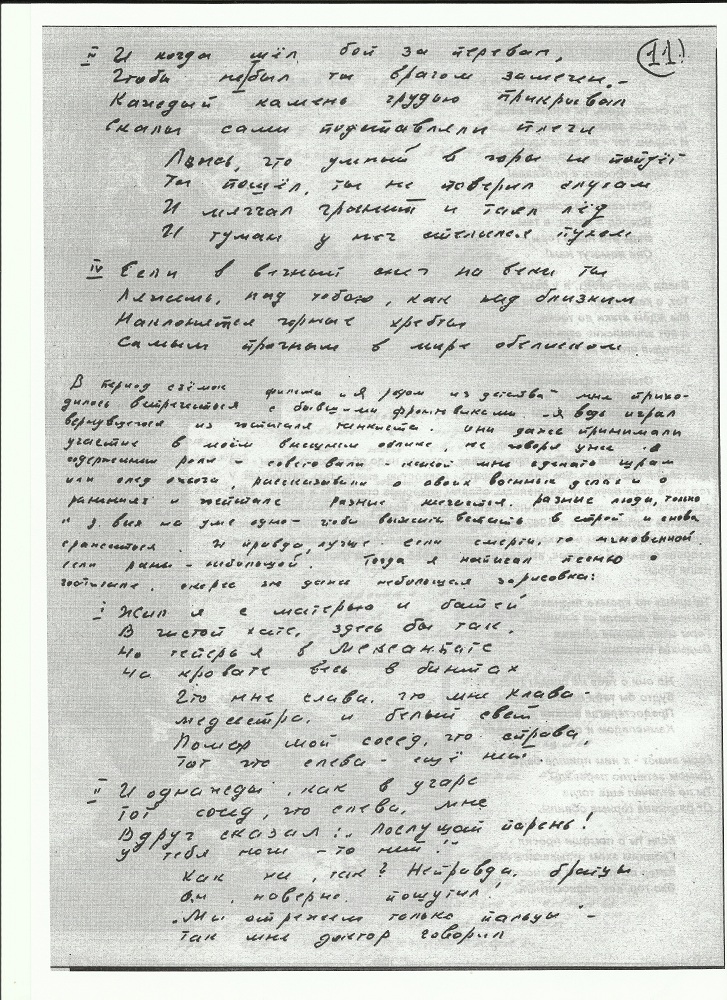 11)
III И когда шёл бой за перевал,
Чтобы не был ты врагом замечен, -
Каждый камень грудью прикрывал
Скалы сами подставляли плечи
Лгусь, что умный в горы не пойдёт
Ты пошёл, ты не поверил слухам
И мягчал гранит и таял лёд
И туман у ног стелился пухом
IV Если в вечный снег на веки ты
Ляжешь, над тобою, как над близким
Наклонятся горные хребты
Самым прочным в мире обелиском
В период съёмок фильма "Я родом из детства" мне прихо-
дилось встречаться с бывшими фронтовиками. - Я ведь играл
вернувшегося из госпиталя танкиста. они даже принимали
участие в моём внешнем облике, не говоря уже о
содержании роли - советовали - какой мне сделать шрам
или след ожога, рассказывали о своих военных делах и о
ранениях и госпитале разные несчастья. разные люди, только
у всех на уме одно - чтобы выжить встать в строй и снова
сражаться. И правда, лучше - если смерть, то мгновенной
если рана - небольшой. Тогда я написал песню о
госпитале, скорее это даже небольшая зарисовка:
I Жил я с матерью и батей
В чистой хате, здесь бы так.
Но теперь я в Медсанбате
На кровате весь в бинтах
Что мне слава, что мне Клава -
медсестра, и белый свет
Помер мой сосед, что справа,
Тот что слева - ещё нет.
II И однажды, как в угаре
Тот сосед, что слева, мне
Вдруг сказал: "Послушай парень!
у тебя ноги - то нет!"
Как же, так? Неправда, братцы.
Он, наверно пошутил!
"Мы отрежем только пальцы" -
Так мне доктор говорил